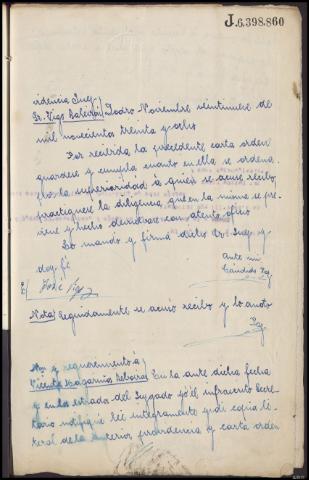 J.6.398.860
videncia Juez
Sr. Vigo Baleirón) Dodro Noviembre veintinueve de
mil novecientos treinta y ocho
Por recibida la precedente carta orden
guardese y cumpla cuanto en ella se ordena
por la superioridad á quien se acuse recibo
practiquese la diligencia que en la misma se pre-
viene y hecho devuelvase con atento oficio
Lo mando y firma dicho Sr. Juez y
doy fé
Ante mi
José Vigo
Nota) Seguidamente se acusó recibo y lo anoto
Not. y requerimiento á)
Vicente En la ante dicha fecha
y en los estrados del Juzgado yo el infrascrito Secre-
tario notifiqué lei integramente y di copia li-
teral de la anterior providencia y carta orden